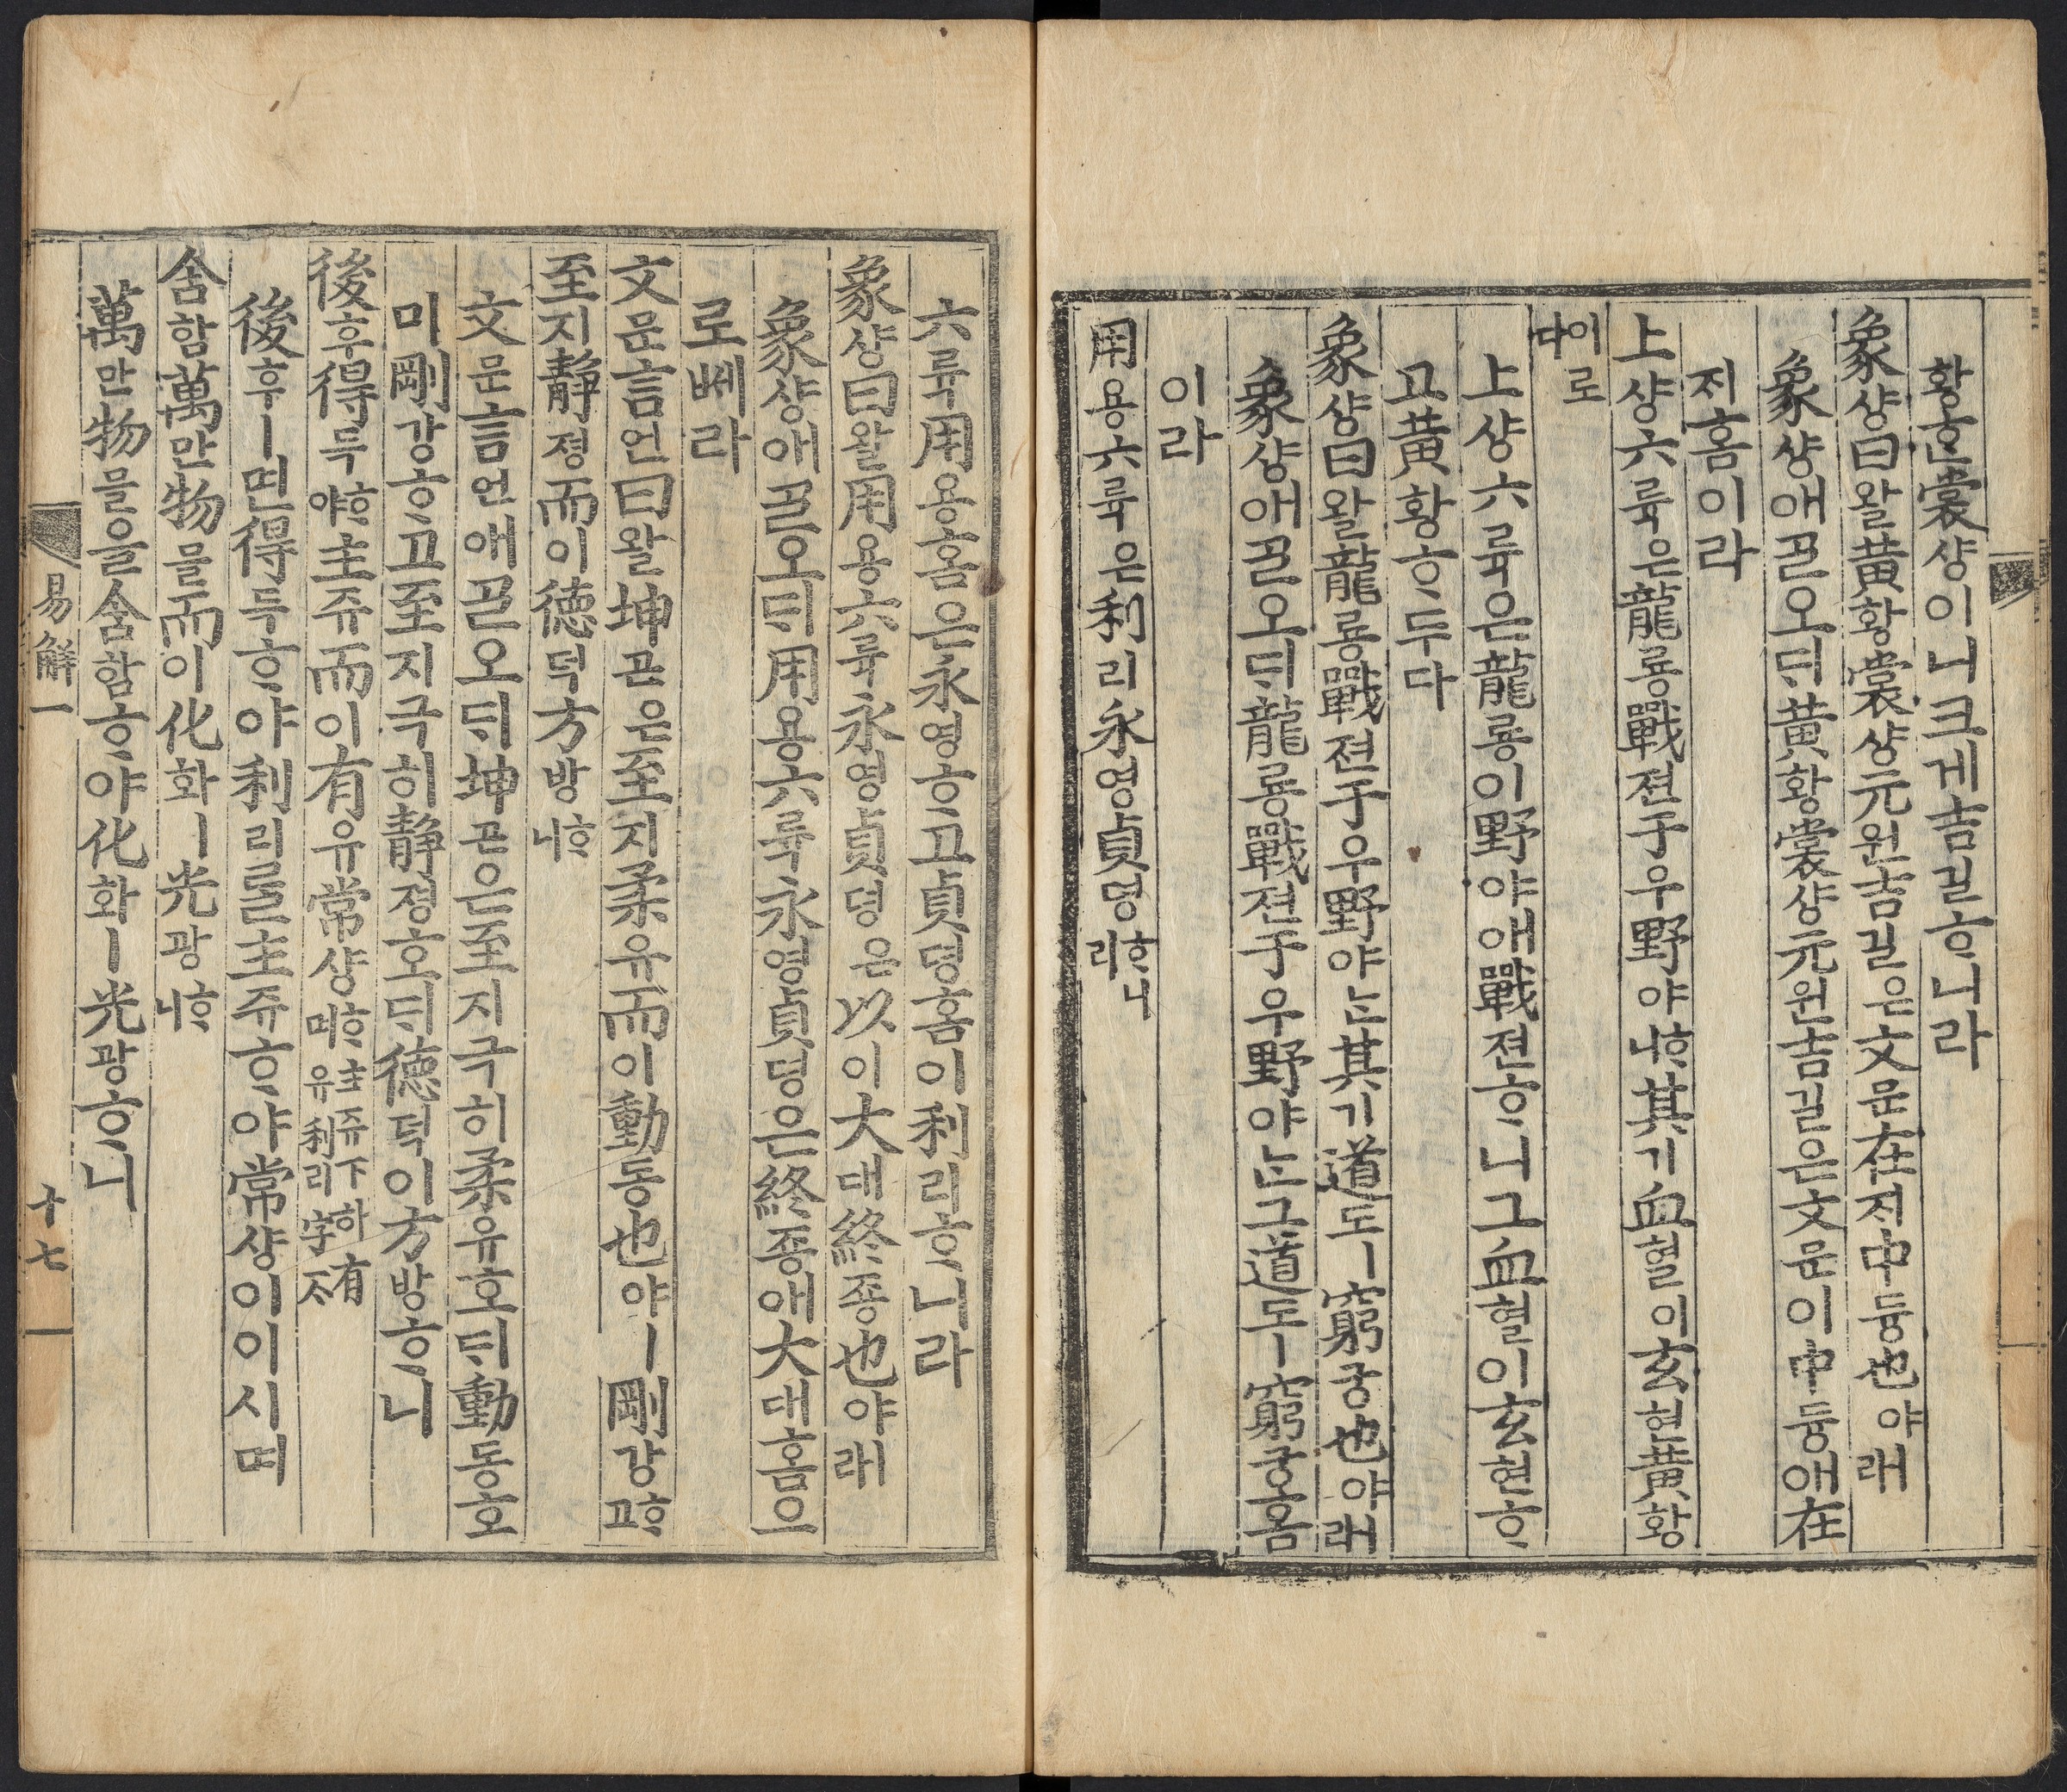 황ᄒᆞᆫ裳샹이니크게吉길ᄒᆞ니라
象샹曰왈黃황裳샹元원吉길은文문在ᄌᆡ中듕也야ㅣ라
象샹애ᄀᆞᆯ오ᄃᆡ黃황裳샹元원吉길은文문이中듕애在
ᄌᆡ홈이라
上샹六륙은龍룡戰젼于우野야ᄒᆞ니其기血혈이玄현黃황
이로다
上샹六륙은龍룡이野야애戰젼ᄒᆞ니그血혈이玄현ᄒᆞ
고黃황ᄒᆞ두다
象샹曰왈龍룡戰젼于우野야ᄂᆞᆫ其기道도ㅣ窮궁也야ㅣ라
象샹애ᄀᆞᆯ오ᄃᆡ龍룡戰젼于우野야ᄂᆞᆫ그道도ㅣ窮궁홈
이라
用용六륙은利리永영貞뎡ᄒᆞ니라
六륙用용홈은永영ᄒᆞ고貞뎡홈이利리ᄒᆞ니라
象샹曰왈用용六륙永영貞뎡은以이大대終죵也야ㅣ라
象샹애ᄀᆞᆯ오ᄃᆡ用용六륙永영貞뎡은終죵애大대홈으
로ᄡᅦ라
文문言언曰왈坤곤은至지柔유而이動동也야ㅣ剛강ᄒᆞ고
至지靜졍而이德덕方방ᄒᆞ니
文문言언애ᄀᆞᆯ오ᄃᆡ坤곤은至지극히柔유호ᄃᆡ動동호
미剛강ᄒᆞ고至지극히靜졍호ᄃᆡ德덕이方방ᄒᆞ니
後후得득ᄒᆞ야主쥬而이有유常샹ᄒᆞ며主쥬下하有유利리字ᄌᆞ
後후ㅣ면得득ᄒᆞ야利리를主쥬ᄒᆞ야常샹이이시며
含함萬만物믈而이化화ㅣ光광ᄒᆞ니
萬만物믈을含함ᄒᆞ야化화ㅣ光광ᄒᆞ니
易解一
十七